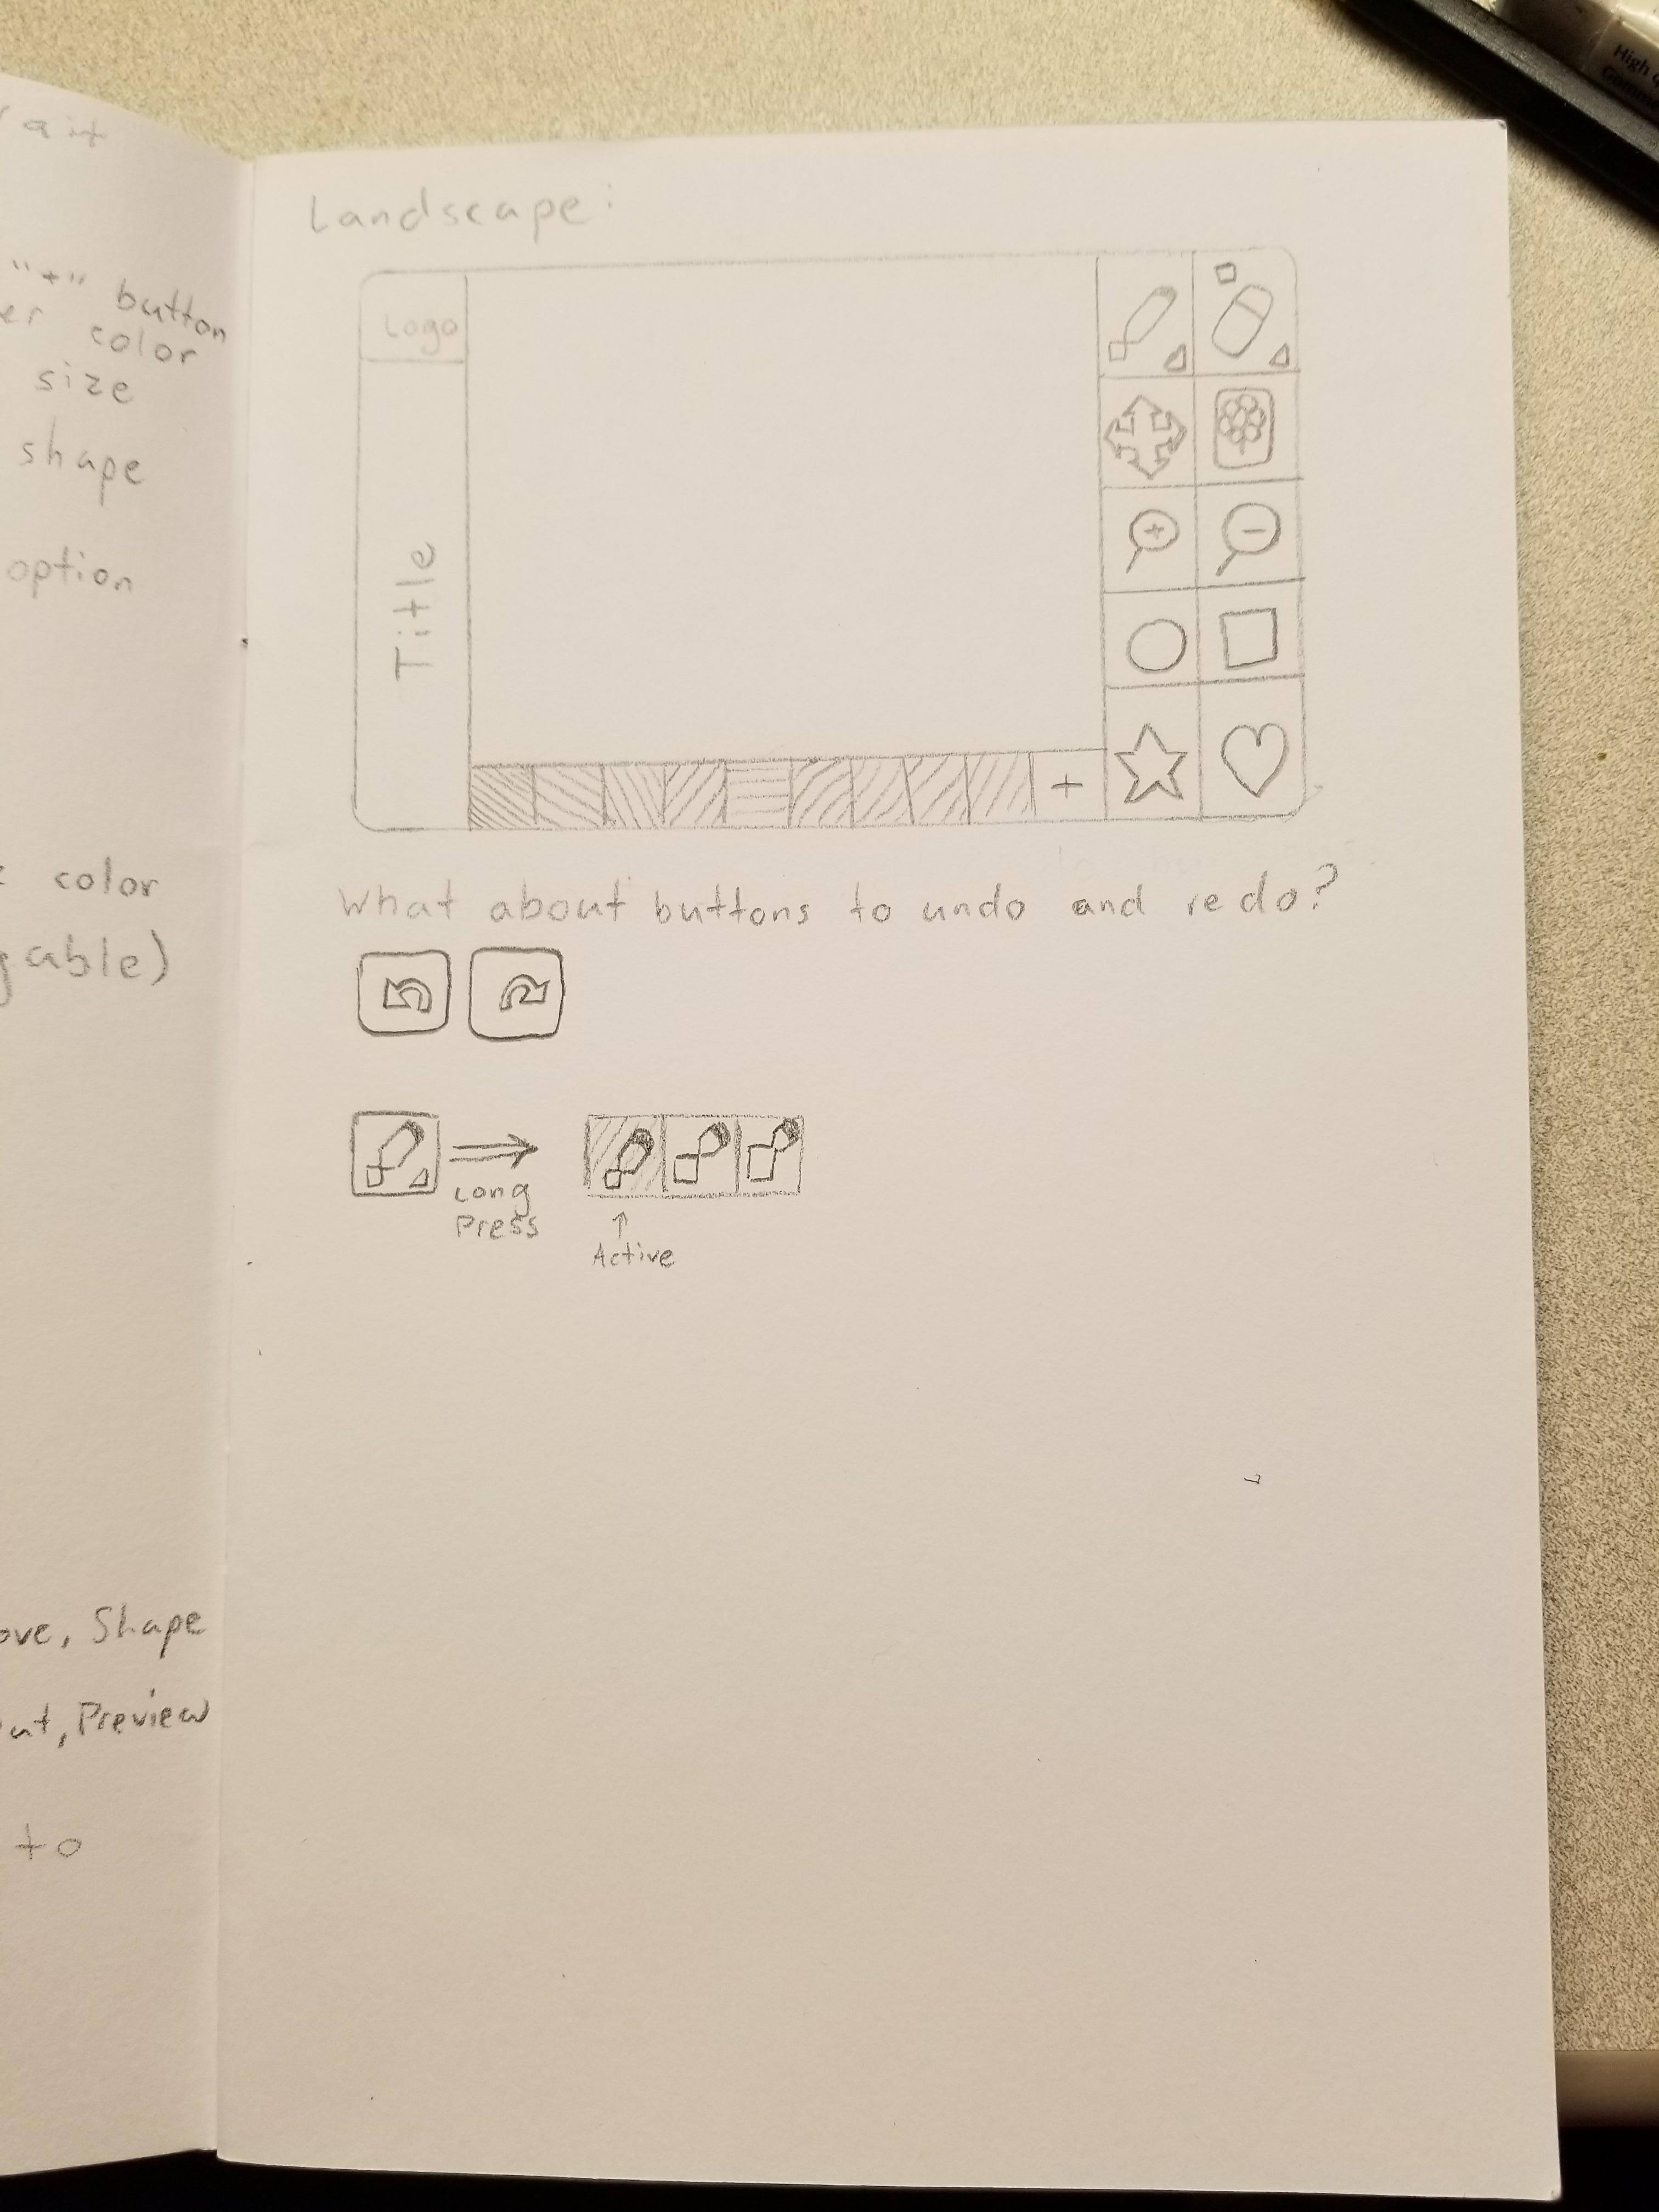 "+" button
color
size
shape
option
color
Shape
Preview
to
Landscape:
Logo
Title
+
What about buttons to undo and redo?
Long
Press
Active